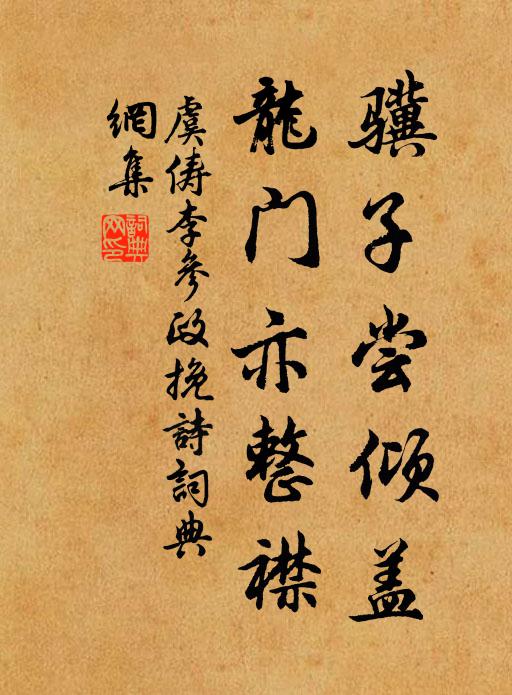 骥子尝倾盖
龍门亦整襟
虞俦李參政挽詩詞典
網集
詞典网印